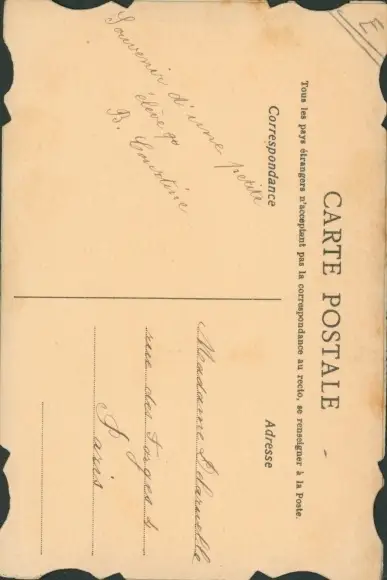 E
CARTE POSTALE
Tous les pays étrangers n'acceptant pas la correspondance au recto, se renseigner à la Poste.
Correspondance
Souvenir d'une petite
élève
B.
Adresse
Madame Delaruelle
rue des Forges
Paris